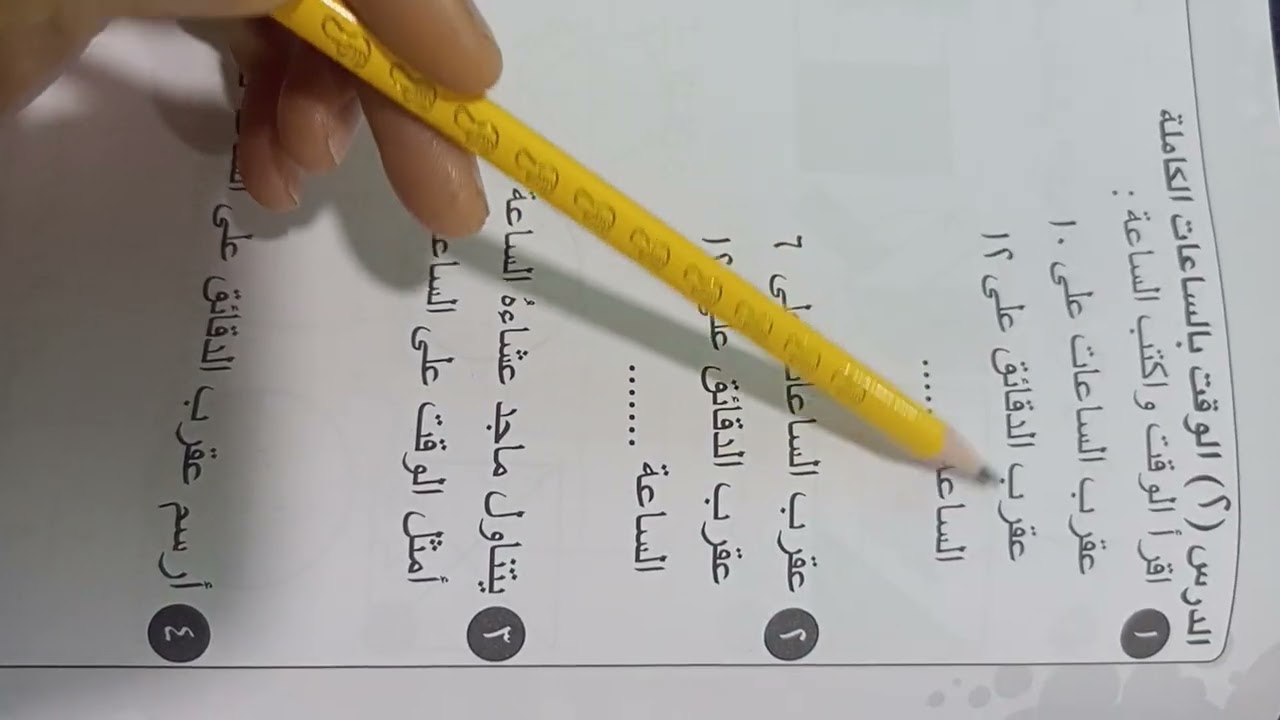 الدرس (٢) الوقت بالساعات الكاملة
١ اقرأ الوقت واكتب الساعة :
عقرب الساعات على ١٠
عقرب الدقائق على ١٢
الساعة .....
٢ عقرب الساعات على ٦
عقرب الدقائق على ١٢
الساعة .......
٣ يتناول ماجد عشاءهُ الساعة
أمثل الوقت على
٤ أرسم عقرب الدقائق على